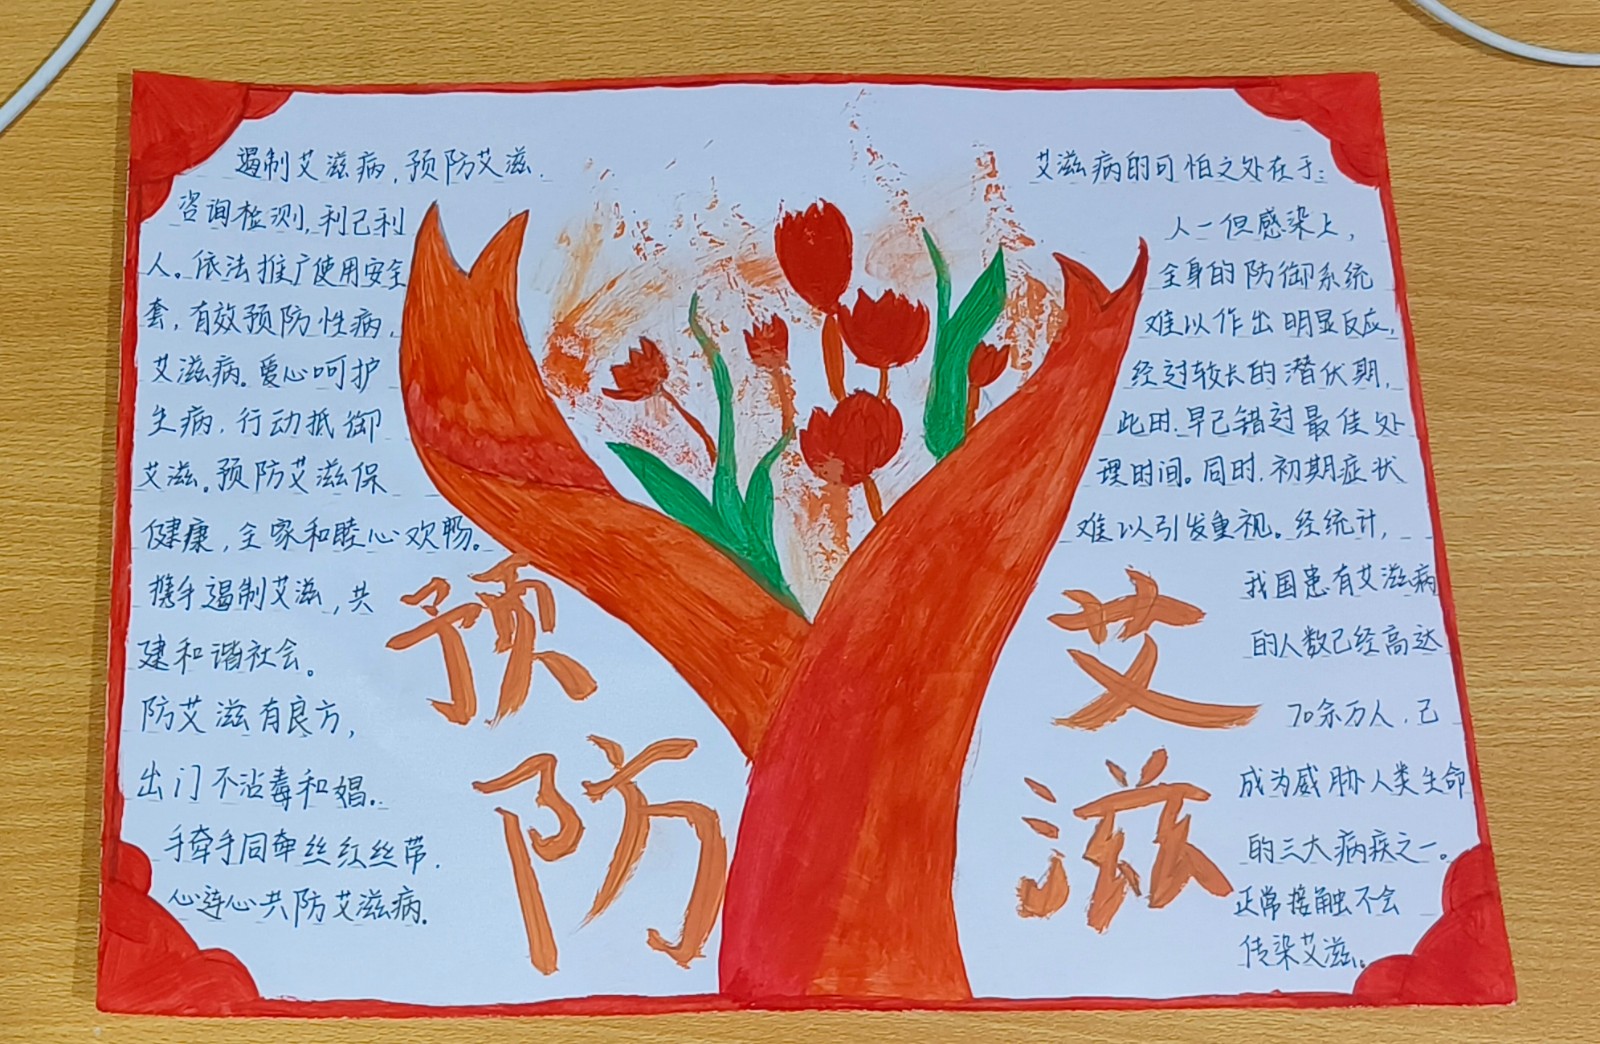 遏制艾滋病,预防艾滋.
咨询检测,利己利
人。依法推广使用安全
套,有效预防性病,
艾滋病。爱心呵护
生病,行动抵御
艾滋。预防艾滋保
健康,全家和睦心欢畅。
携手遏制艾滋,共
建和谐社会。
防艾滋有良方,
出门不沾毒和娼。
手牵手同牵丝红丝带.
心连心共防艾滋病.
预
防
艾
滋
艾滋病的可怕之处在于:
人一但感染上,
全身的防御系统
难以作出明显反应,
经过较长的潜伏期,
此时.早已错过最佳处
理时间。同时.初期症状
难以引发重视。经统计,
我国患有艾滋病
的人数已经高达
70余万人.已
成为威胁人类生命
的三大病疾之一。
正常接触不会
传染艾滋。